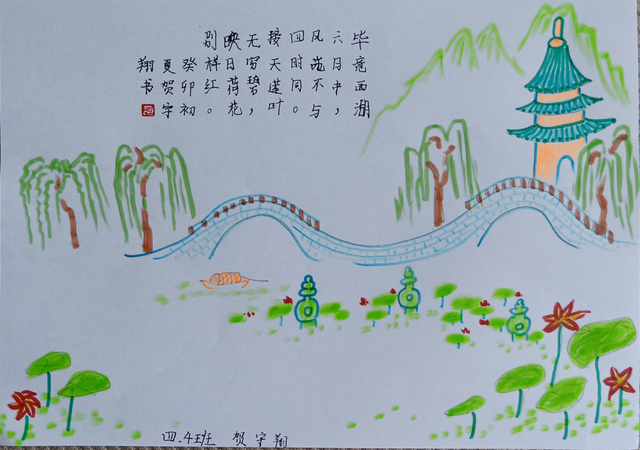 毕竟西湖
六月中，
风光不与
四时同。
接天莲叶
无穷碧，
映日荷花
别样红。
癸卯初
夏贺宇
翔书
四.4班 贺宇翔